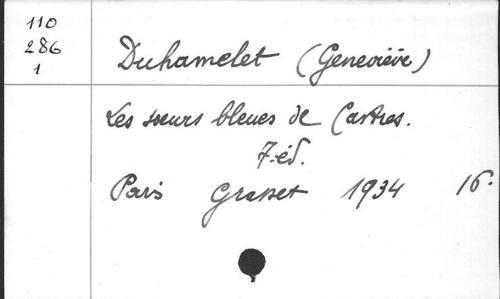 110
286
1
Duhamelet (Geneviève)
Les sœurs bleues de Castres.
7. éd.
Paris Grasset 1934 16.